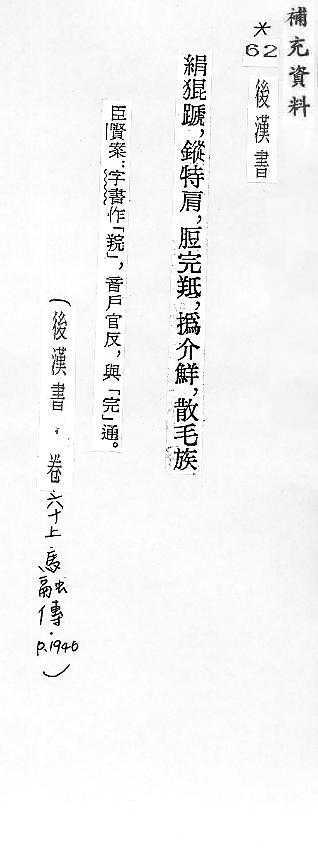 補充資料
*
62
後漢書
絹猑蹏，鏦特肩，脰完羝，撝介鮮，散毛族
臣賢案：字書作「羦」，音戶官反，與「完」通。
（後漢書．卷六十上馬融傳．p.1946）